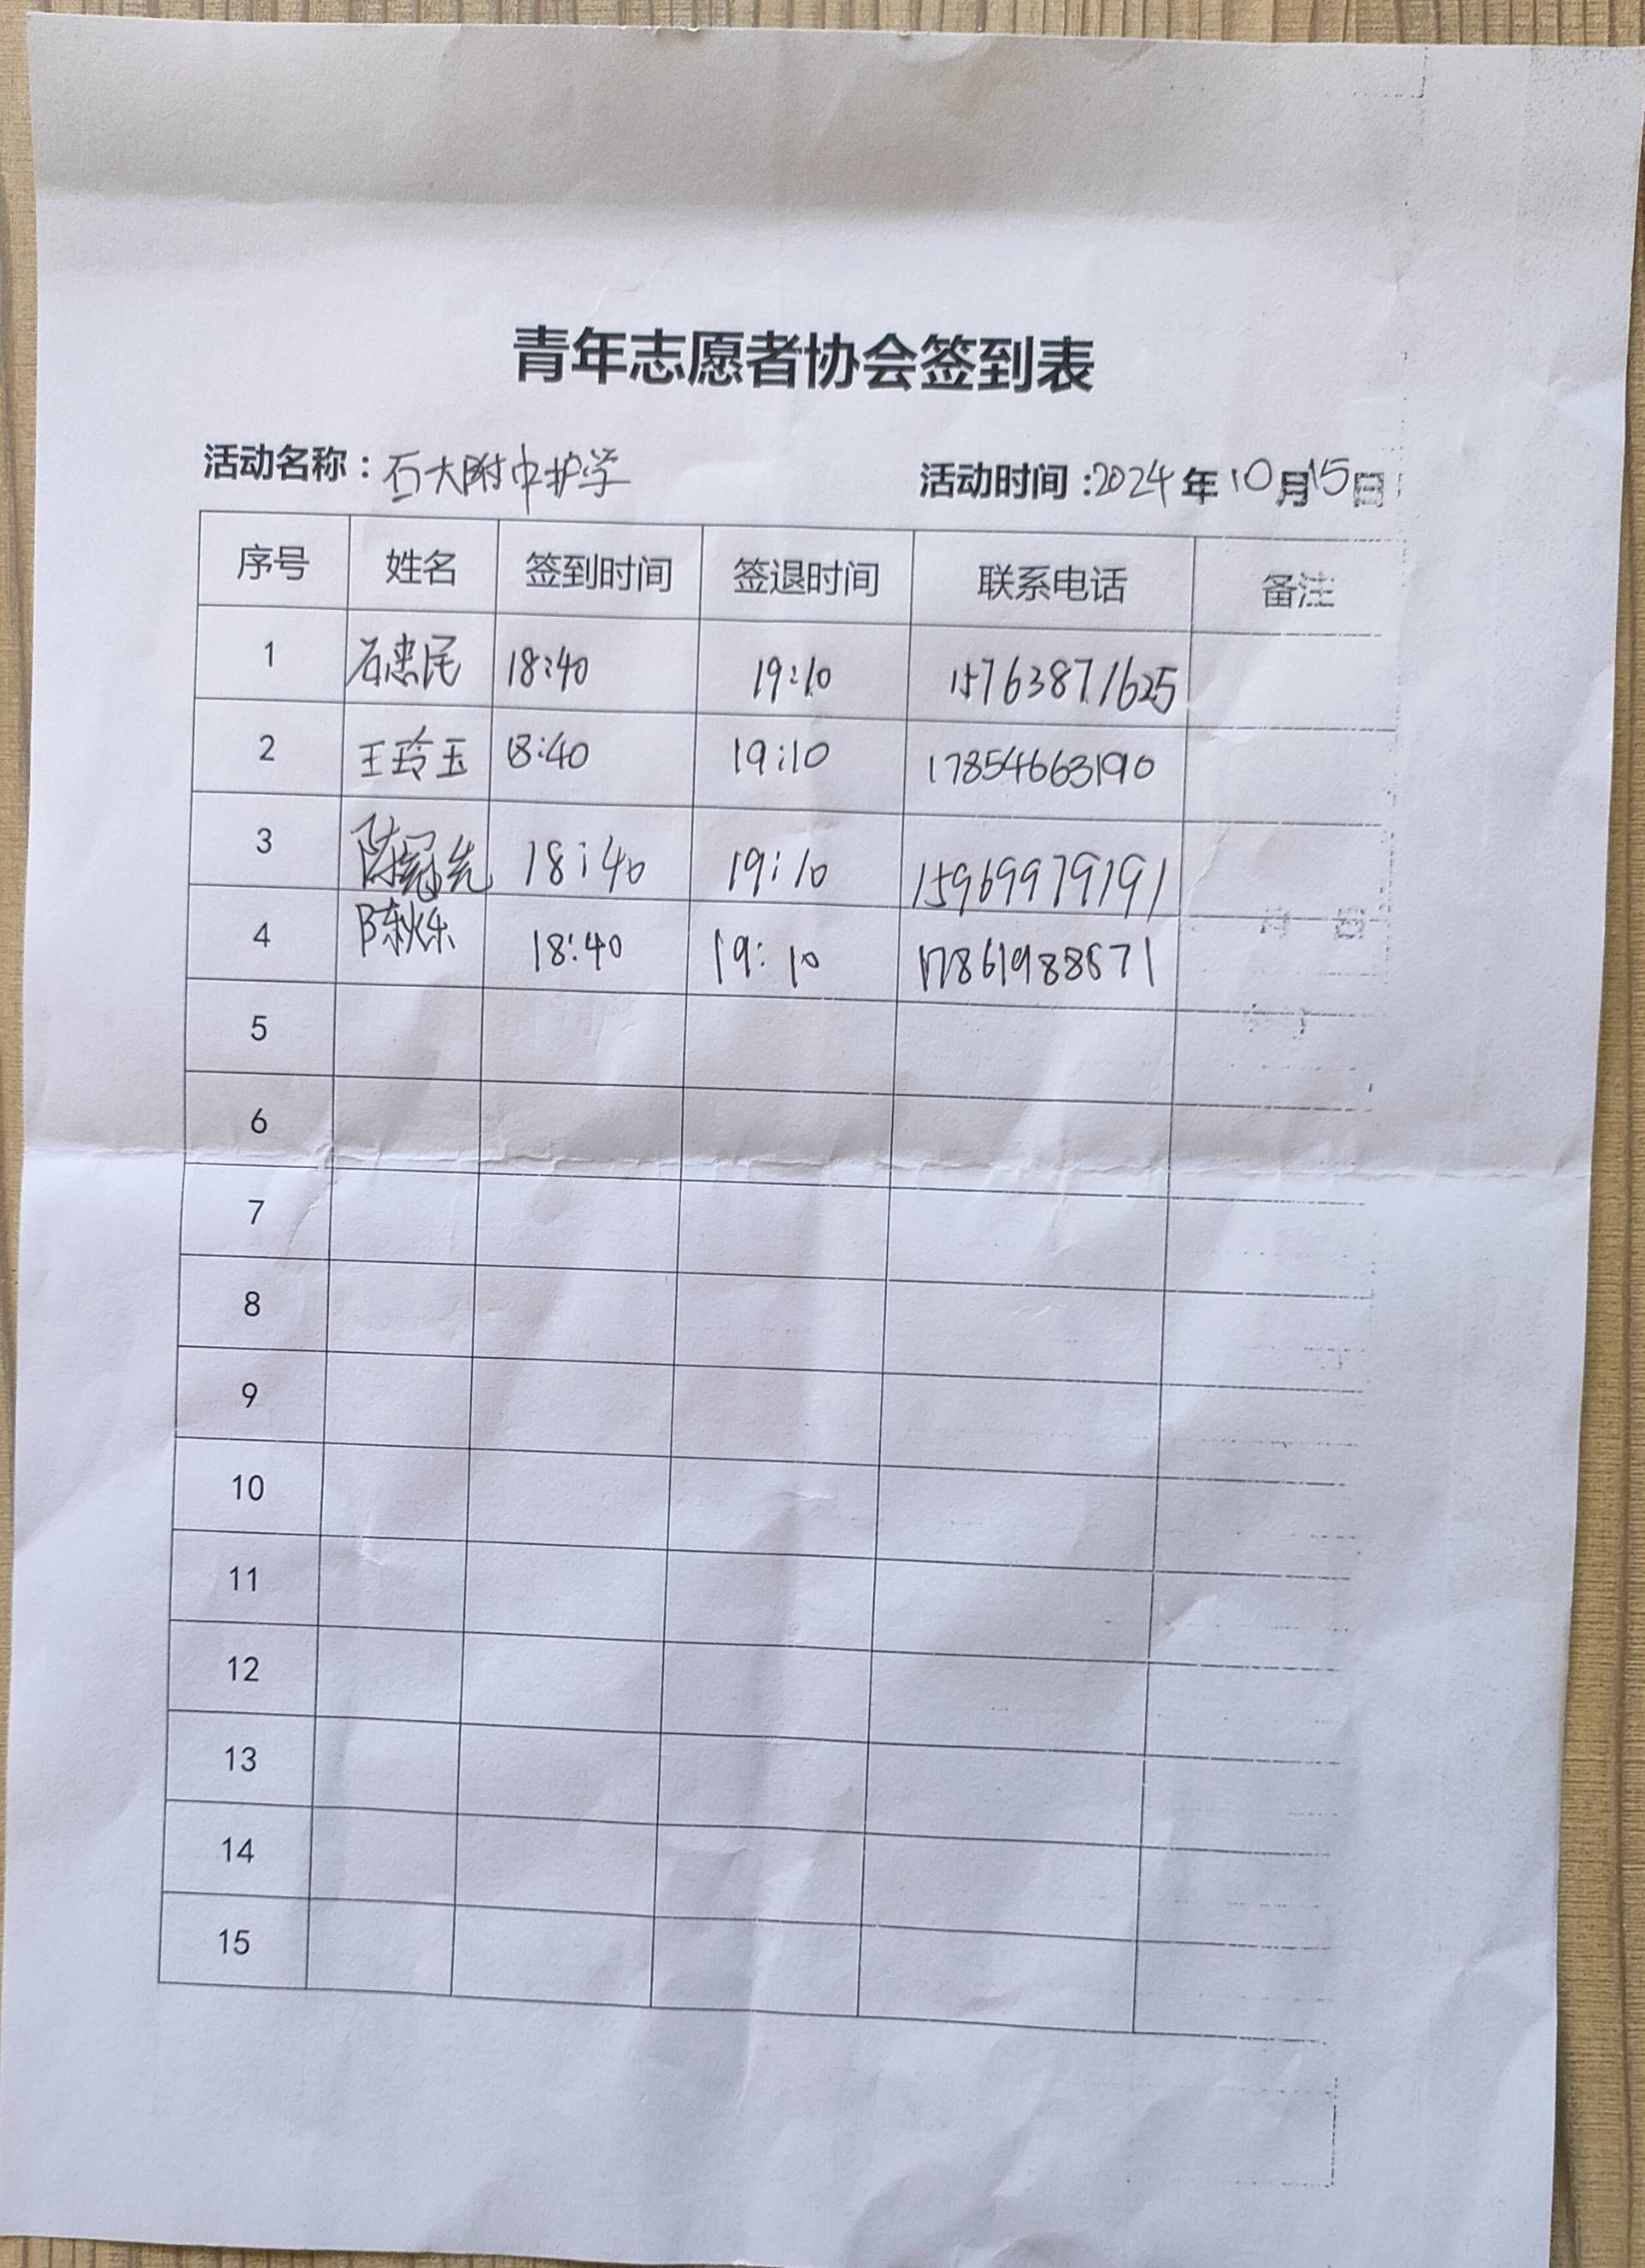 青年志愿者协会签到表
活动名称：石大附中护学 活动时间：2024年10月15日
序号 姓名 签到时间 签退时间 联系电话 备注
1 石忠民 18:40 19:10 15763871625
2 王玲玉 18:40 19:10 17854663190
3 陈冠先 18:40 19:10 15969979191
4 陈秋乐 18:40 19:10 17861988671
5
6
7
8
9
10
11
12
13
14
15